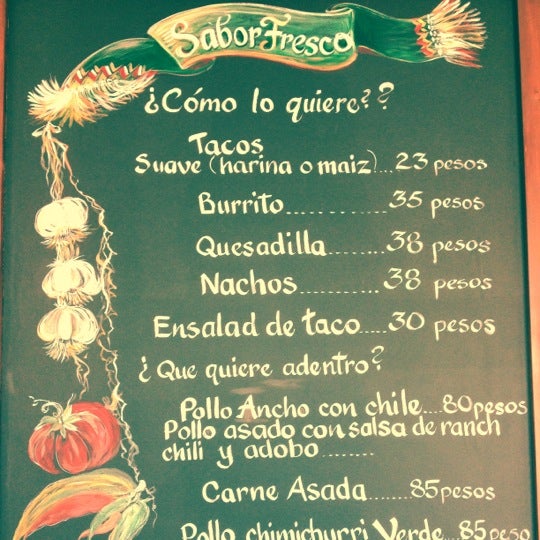 Sabor Fresco
¿Cómo lo quiere??
Tacos
Suave (harina o maiz)....23 pesos
Burrito............35 pesos
Quesadilla........38 pesos
Nachos..........38 pesos
Ensalad de taco.....30 pesos
¿Que quiere adentro?
Pollo Ancho con chile....80 pesos
Pollo asado con salsa de ranch
chili y adobo........
Carne Asada.......85 pesos
Pollo chimichurri Verde..85 peso